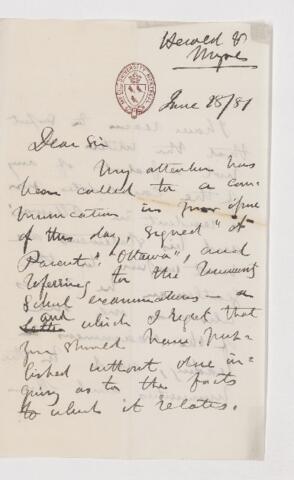 Herald &
June 28/81
Dear Sir
My attention has
been called to a com-
munication in your issue
of this day, signed "A
Parent" "Ottawa", and
referring to the
School examinations - a
and
Letter which I regret that
you should have pub-
lished without due in-
quiry as to the facts
to which it relates.